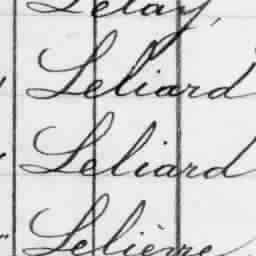 Lelay,
Leliard
Leliard
Lelièvre